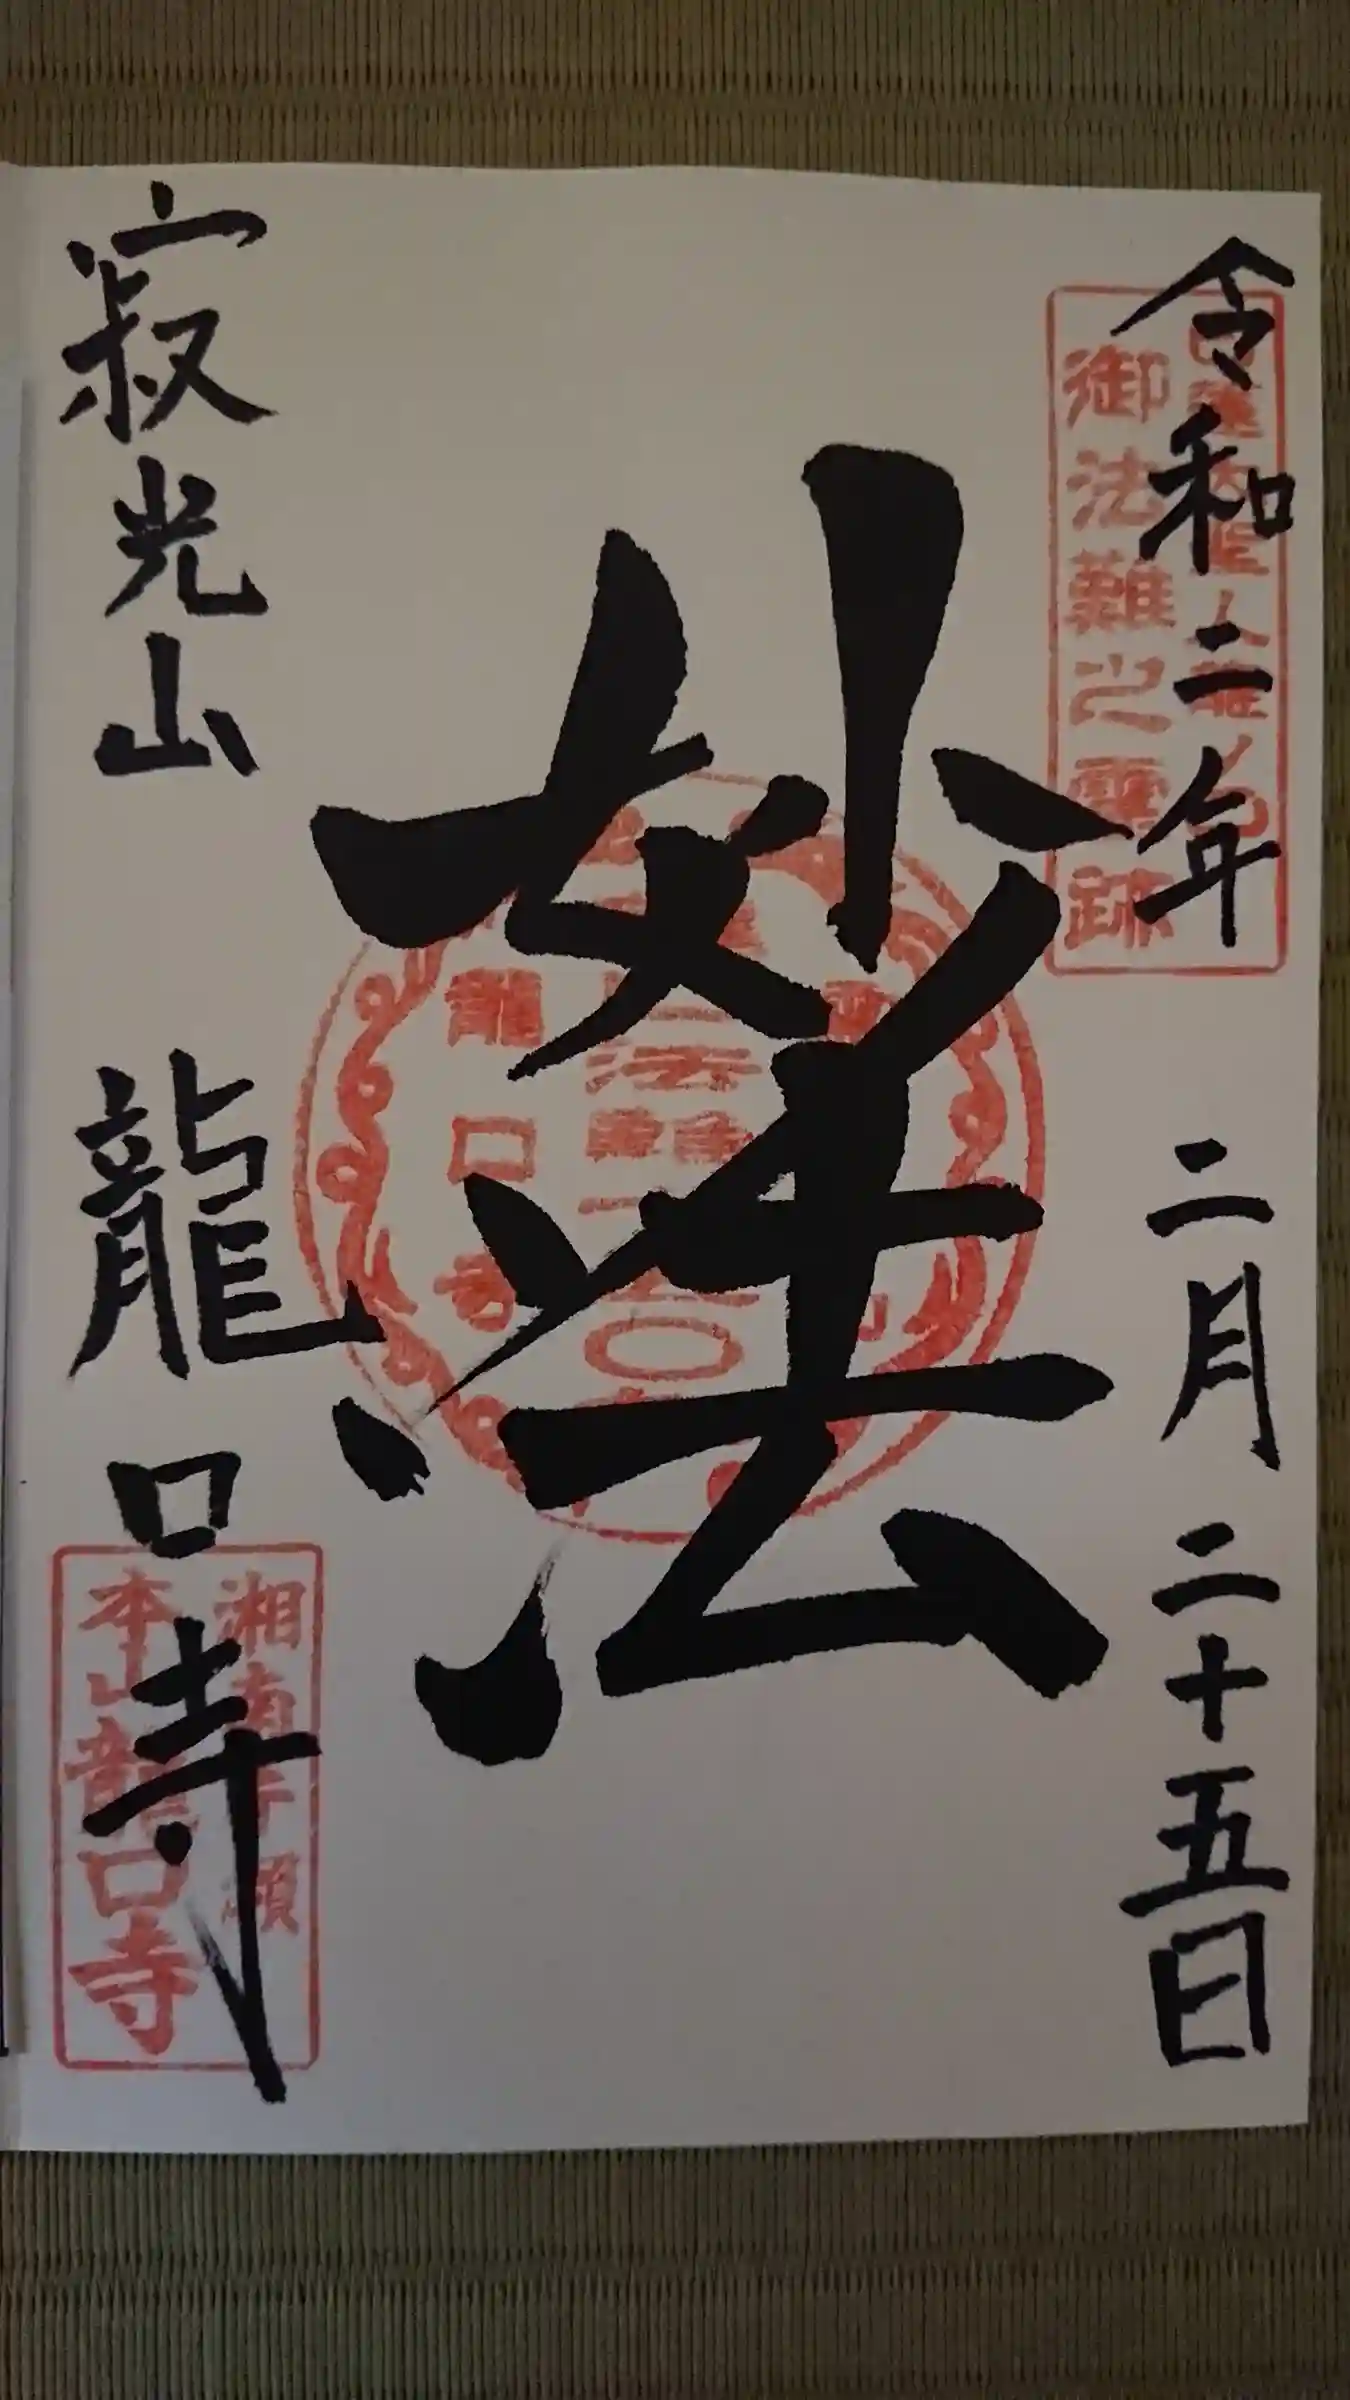 令和二年 二月 二十五日
御法難之霊跡
妙法
龍口寺
寂光山 龍口寺
湘南片瀬
本山龍口寺